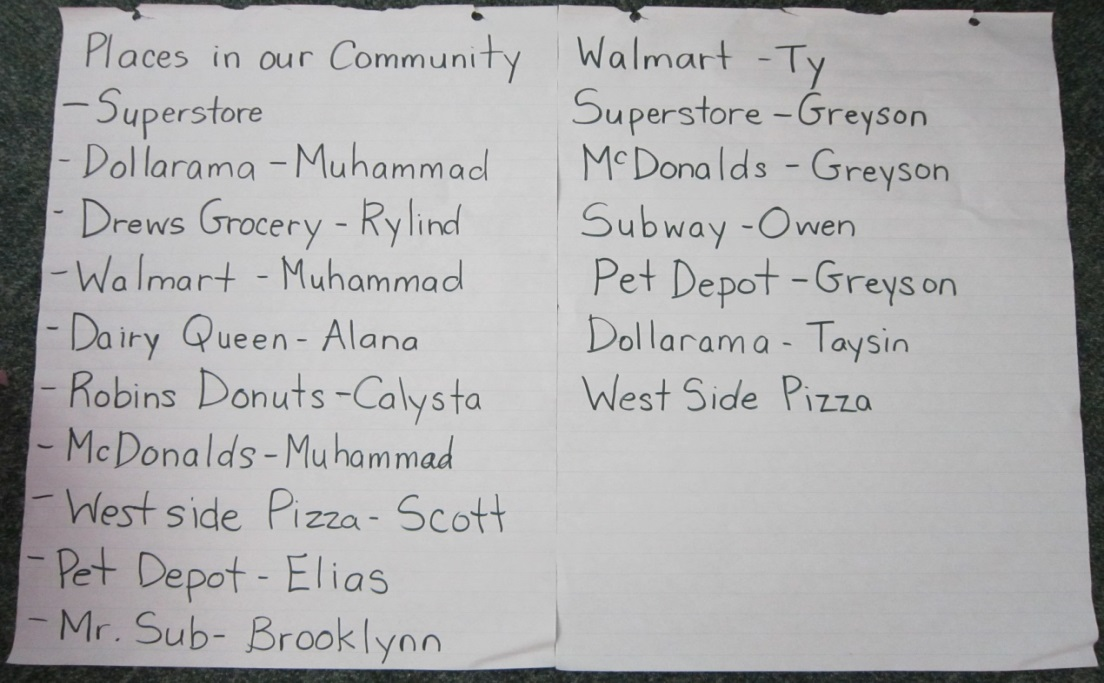 Places in our Community
- Superstore
- Dollarama - Muhammad
- Drews Grocery - Rylind
- Walmart - Muhammad
- Dairy Queen - Alana
- Robins Donuts - Calysta
- McDonalds - Muhammad
- West side Pizza - Scott
- Pet Depot - Elias
- Mr. Sub - Brooklynn
Walmart - Ty
Superstore - Greyson
McDonalds - Greyson
Subway - Owen
Pet Depot - Greyson
Dollarama - Taysin
West Side Pizza